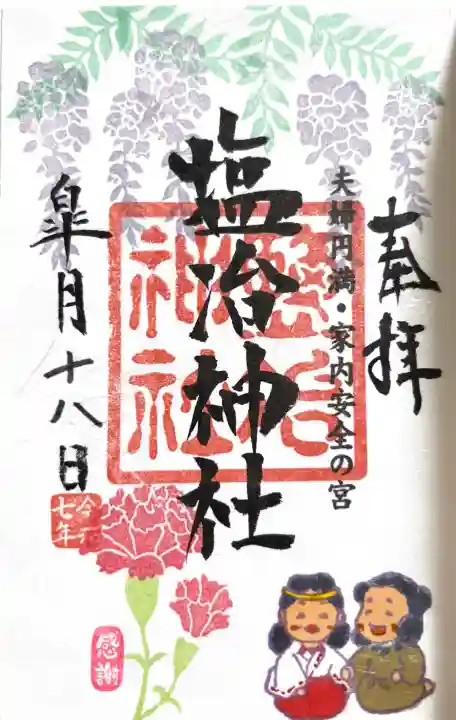 奉拝
夫婦円満・家内安全の宮
塩冶神社
皐月十八日
七年
感謝